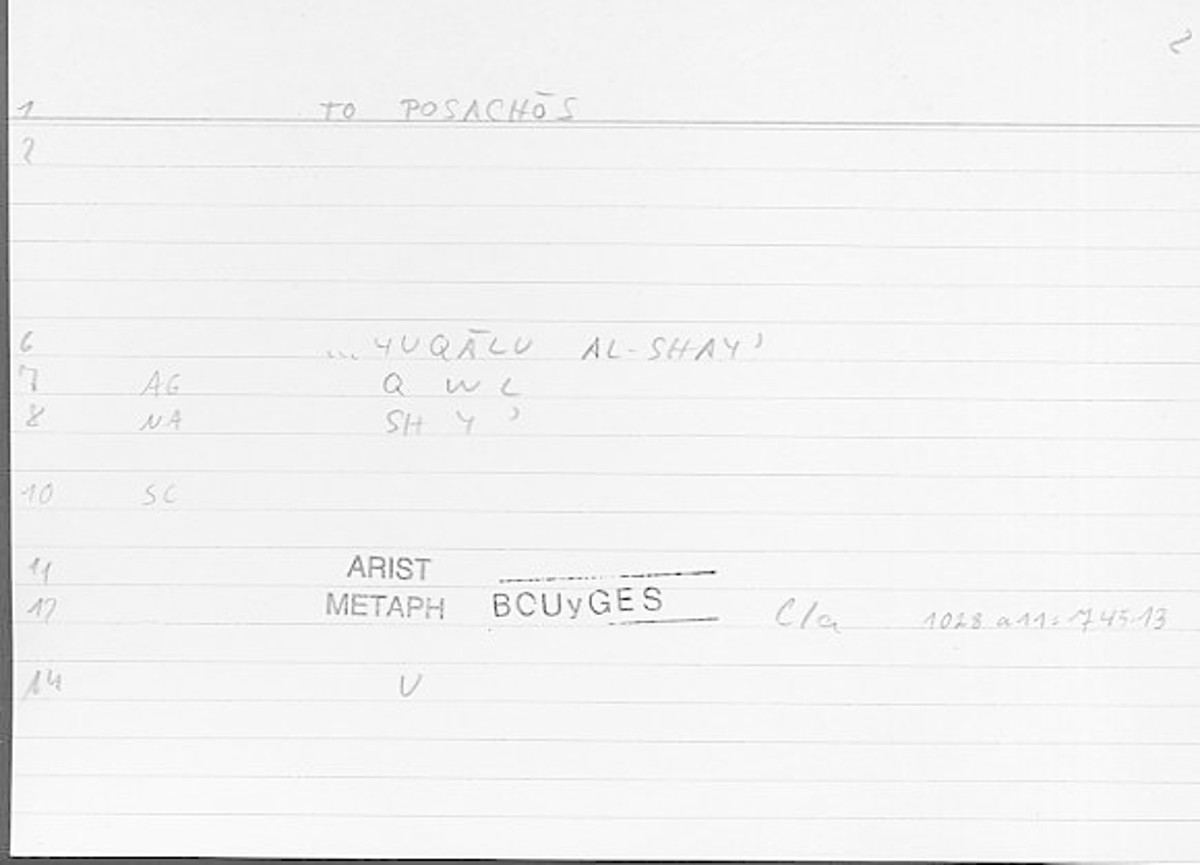 2
1 TO POSACHŌS
2
6 ... YUQĀLU AL-SHAY'
7 AG Q W L
8 NA SH Y '
10 SC
11 ARIST
12 METAPH BCUyGES C/a 1028 a 11 = 745.13
14 V